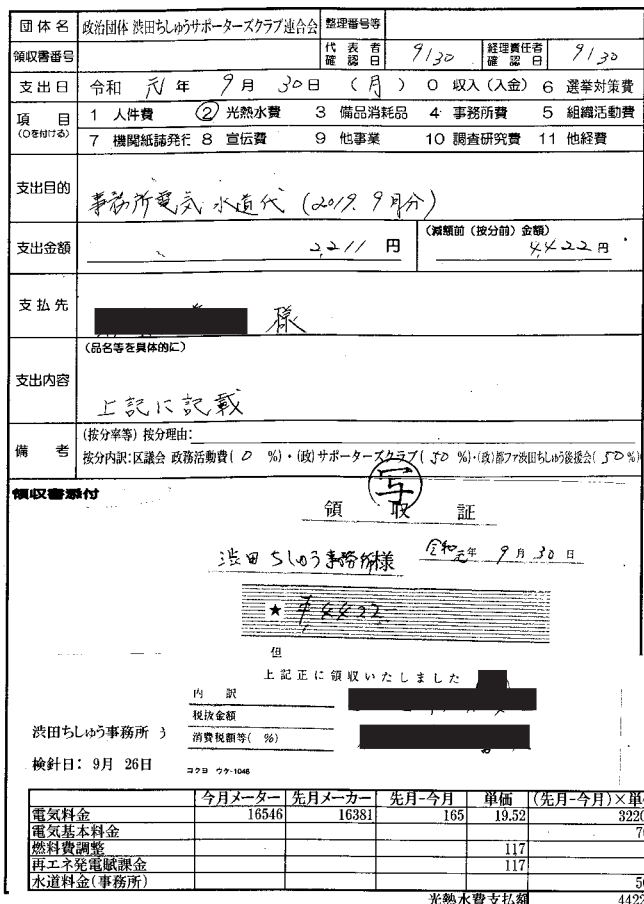 団体名 政治団体 渋田ちしゅうサポーターズクラブ連合会 整理番号等
領収書番号 代表者確認日 9/30 経理責任者確認日 9/30
支出日 令和 元年 9月 30日 (月) 0 収入(入金) 6 選挙対策費
項目 (○を付ける) 1 人件費 ② 光熱水費 3 備品消耗品 4 事務所費 5 組織活動費
7 機関紙誌発行 8 宣伝費 9 他事業 10 調査研究費 11 他経費
支出目的 事務所電気 水道代 (2019. 9月分)
支出金額 2,211 円 (減額前(按分前)金額) 4,422 円
支払先 様
(品名等を具体的に)
支出内容 上記に記載
備考 (按分率等) 按分理由:
按分内訳:区議会 政務活動費( 0 %)・(政)サポーターズクラブ( 50 %)・(政)都ファ渋田ちしゅう後援会( 50 %)
領収書添付
写
領収証
渋田ちしゅう事務所様 令和元年 9月 30日
★ ¥4422-
但
上記正に領収いたしました
内訳
税抜金額
消費税額等( %)
コクヨ ウケ-1046
渋田ちしゅう事務所
検針日: 9月 26日
今月メーター 先月メーカー 先月-今月 単価 (先月-今月)×単
電気料金 16546 16381 165 19.52 3220
電気基本料金
燃料費調整 117
再エネ発電賦課金 117
水道料金(事務所)
光熱水費支払額 442